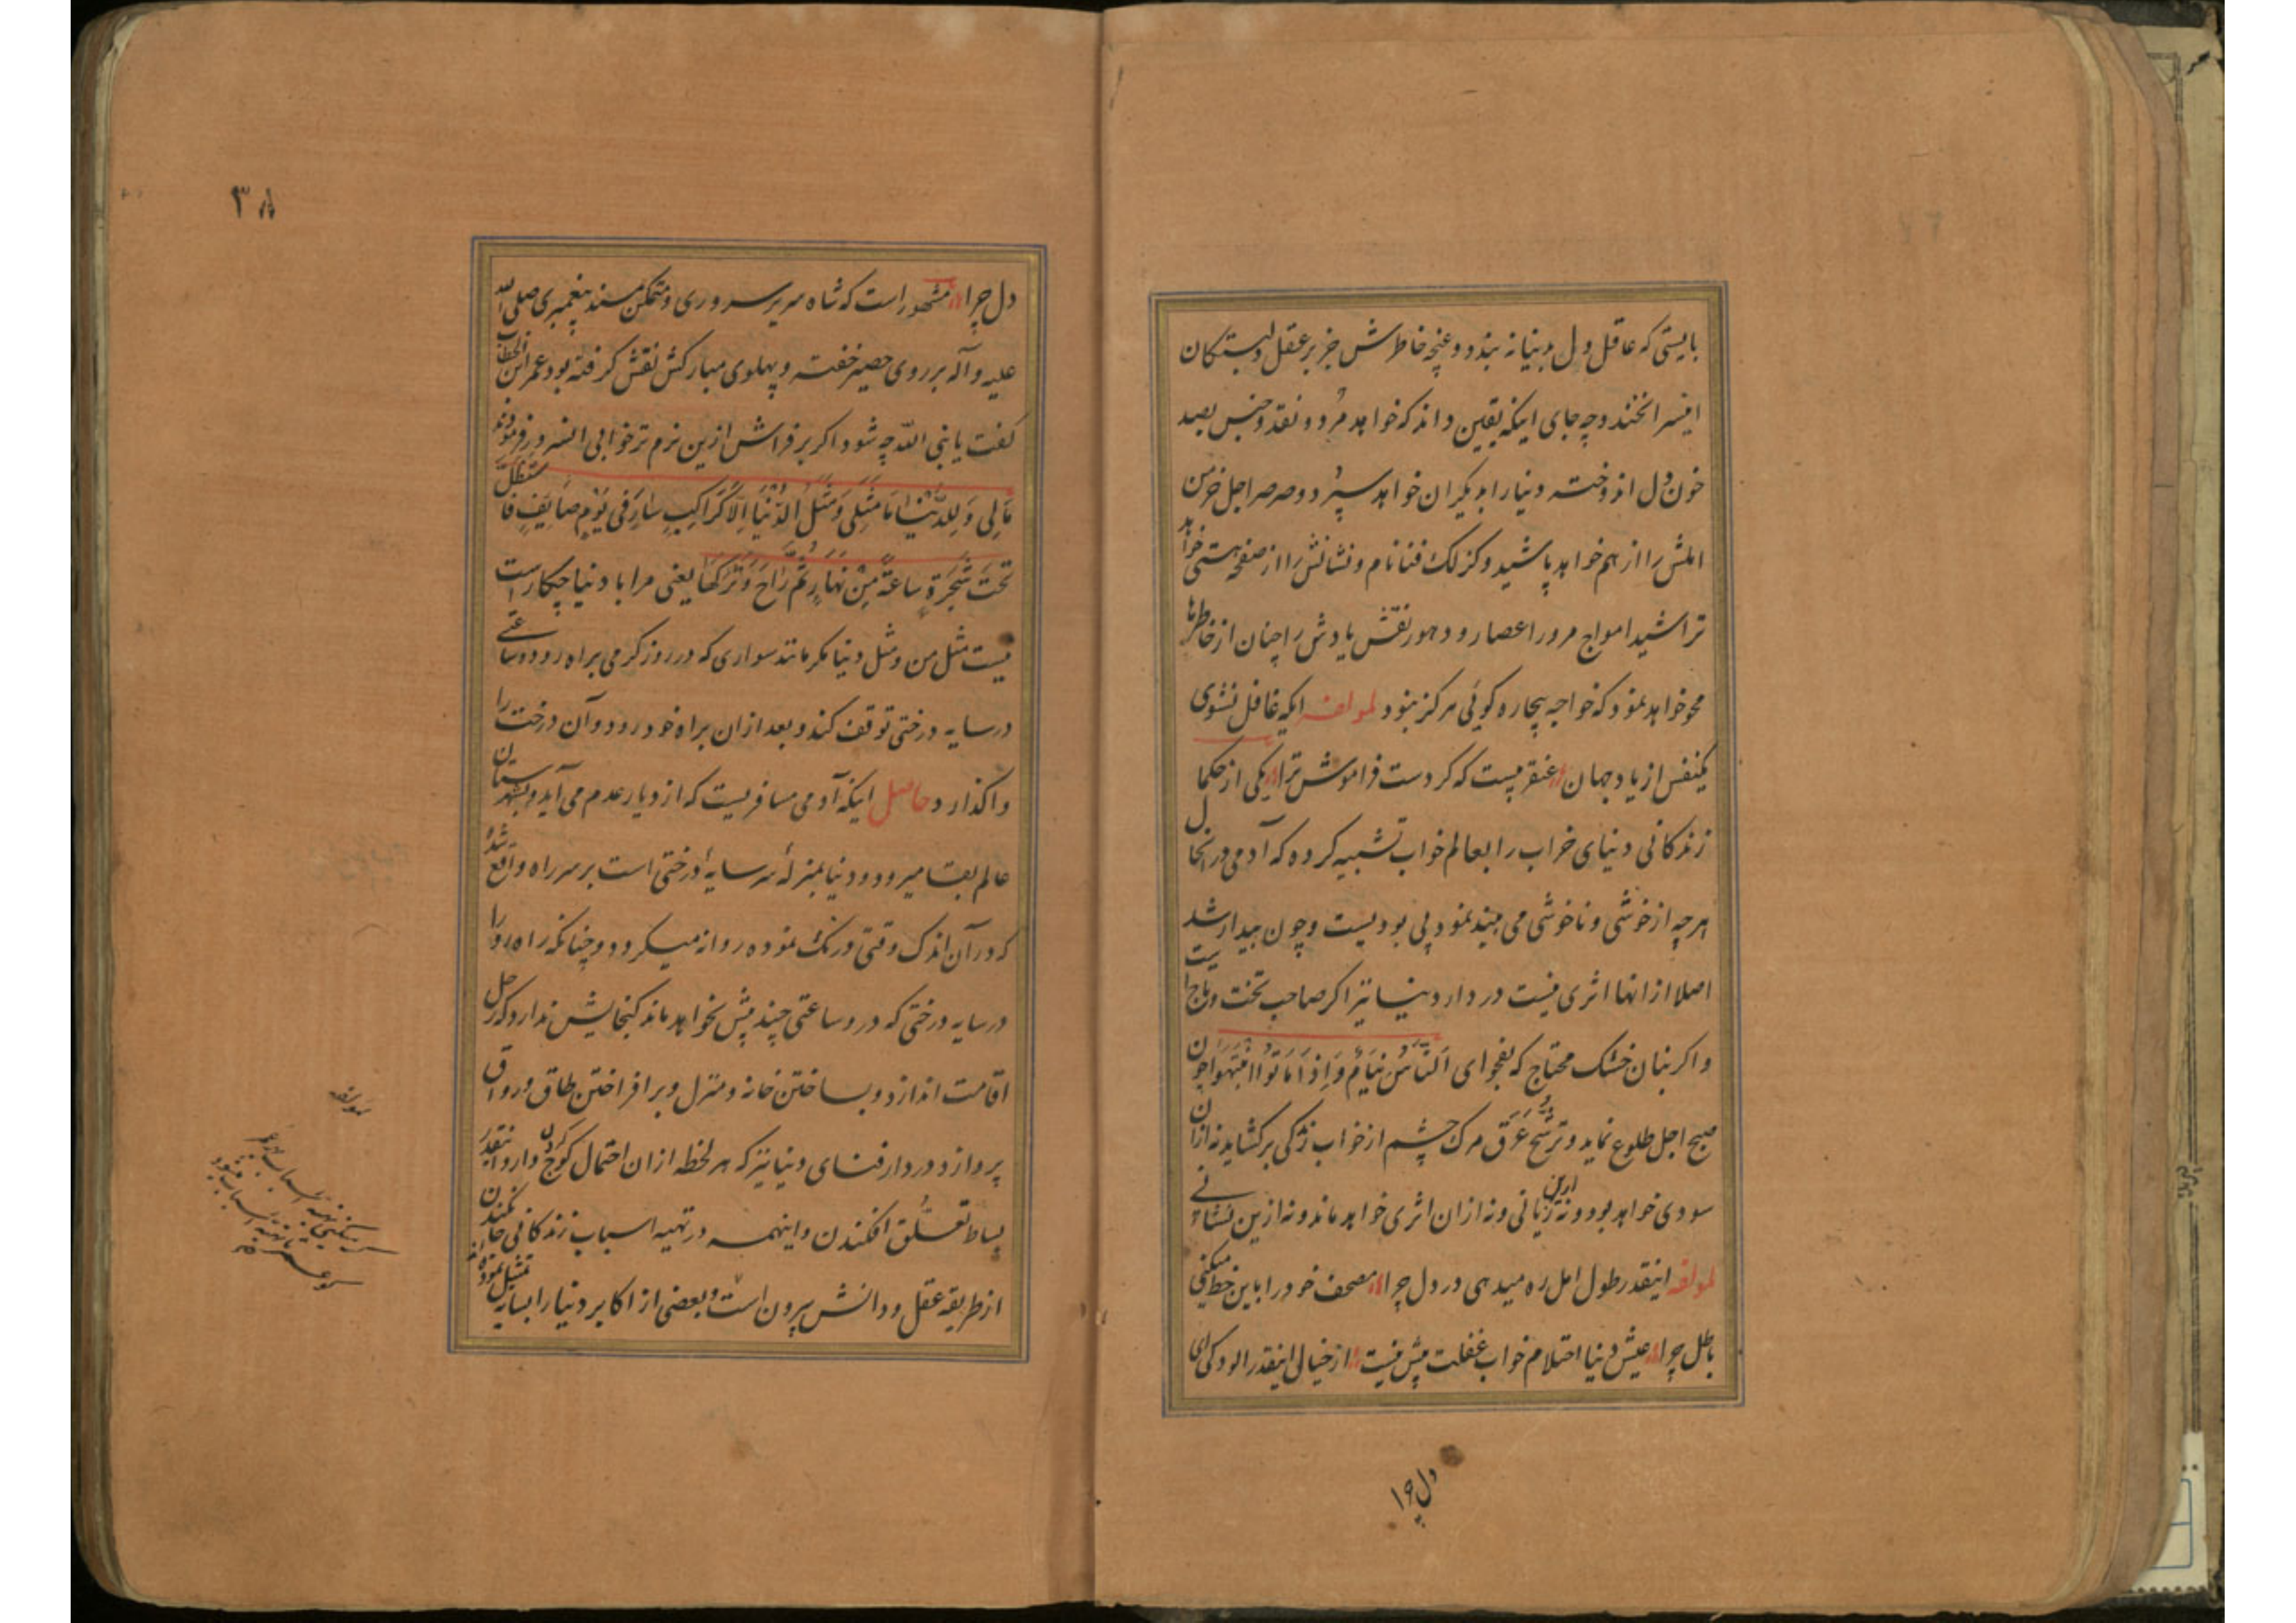 بایستی که عاقل دل بدنیا نه بندد و غنچه خاطرش جز بر عقل دلبستگان
اینسرا نخندد چه جای اینکه یقین داند که خواهد مرد و نقد و جنس بصد
خون دل اندوخته دنیا را بدیگران خواهد سپرد و صرصر اجل خرمن
املش را از هم خواهد پاشید و کزلک فنا نام و نشانش را از صفحه هستی خواهد
تراشید امواج مرور اعصار و دهور نقش یادش را چنان از خاطرها
محو خواهد نمود که خواجه بیچاره کوئی هرکز نبود لمولفه ایکه غافل نشوی
یکنفس از یاد جهان عنقریبست که کردست فراموش ترا یکی از حکما
زندکانی دنیای خراب را بعالم خواب تشبیه کرده که آدمی در انحال
هرچه از خوشی و ناخوشی می بیند نمود بی بودیست و چون بیدار شد
اصلا از انها اثری نیست در دار دنیا نیز اکر صاحب تخت و تاجیست
و اکر بنان خشک محتاج که بفحوای اَلنّاسُ نِیَامٌ وَاِذَا مَاتُوا انْتَبَهَوا چون
صبح اجل طلوع نماید و ترشّح عَرَق مرک چشم از خواب زندکی برکشاید نه ازان
سودی خواهد بود و نه ازین زیانی و نه ازان اثری خواهد ماند و نه ازین نشانے
لمولفه اینقدر طول امل ره میدهی در دل چرا مصحف خود را باین خط میکنی
باطل چرا عیش دنیا احتلام خواب غفلت بیش نیست از خیالی اینقدر الودکی ای
دل چرا
۳۸
دل چرا مشهور است که شاه سریر سروری و متمکن مسند پیغمبری صلی الله
علیه و آله بر روی حصیر خفته و پهلوی مبارکش نقش کرفته بود عمر ابن الخطاب
کفت یا نبی الله چه شود اکر بر فراش ازین نرم تر خوابی انسرور فرمودند
مَالِی وَلِلدُّنْیَا مَا مَثَلِی وَمَثَلُ الدُّنْیَا اِلَّا کَرَاکِبٍ سَارَ فِی یَوْمٍ صَایِفٍ فَاسْتَظَلَّ
تَحْتَ شَجَرَةٍ سَاعَةً مِنْ نَهَارٍ ثُمَّ رَاحَ وَتَرَکَهَا یعنی مرا با دنیا چکار است
نیست مثل من و مثل دنیا مکر مانند سواری که در روز کرمی براه رود و ساعتے
در سایه درختی توقف کند و بعد ازان براه خود رود و آن درخت را
واکذارد حاصل اینکه آدمی مسافریست که از دیار عدم می آید و بشهرستان
عالم بقا میرود و دنیا بمنزلۀ سایۀ درختی است بر سر راه واقع شده
که در آن اندک وقتی درنک نموده روانه میکردد و چنانکه راه رو را
در سایه درختی که درو ساعتی چند بیش نخواهد ماند کنجایش ندارد که رحل
اقامت اندازد و بساختن خانه و منزل و برافراختن طاق و رواق
پردازد در دار فنای دنیا نیز که هر لحظه ازان احتمال کوچ کردن دارد اینقدر
بساط تعلّق افکندن و اینهمه در تهیه اسباب زندکانی جان کندن
از طریقه عقل و دانش بیرون است و بعضی از اکابر دنیا را بسایه تمثیل نموده اند